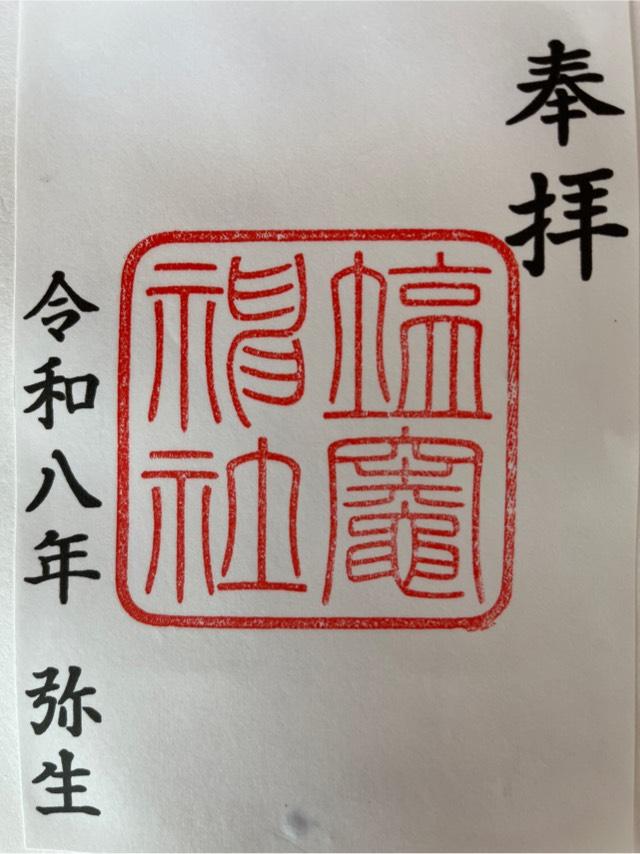 奉拝
塩竈
神社
令和八年 弥生